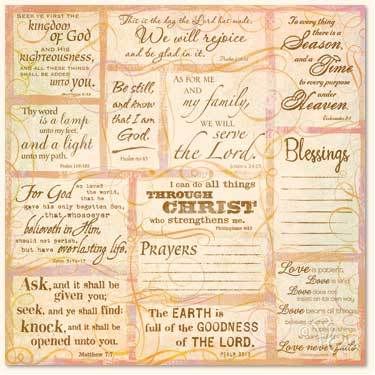 SEEK YE FIRST THE
kingdom
of God
AND HIS
righteousness,
AND ALL THESE THINGS
SHALL BE ADDED
unto you.
This is the day the Lord has made.
We will rejoice
and be glad in it.
To every thing
there is a
Season,
and a
Time
to every purpose
under
Heaven.
Thy word
is a lamp
unto my feet,
and a light
unto my path.
Be still,
and know
that I am
God.
AS FOR ME
and
my family,
WE WILL
serve
the Lord.
Blessings
For God so loved
the world,
that he
gave his only begotten Son,
that whosoever
believeth in Him,
should not perish,
but have everlasting life.
I can do all things
THROUGH
CHRIST
who strengthens me.
Philippians 4:13
Prayers
Ask, and it shall be
given you;
seek, and ye shall find:
knock, and it shall be
opened unto you.
Matthew 7:7
The EARTH is
full of the GOODNESS
of the LORD.
PSALM 33:5
Love is patient,
Love is kind
Love does not
insist on its own way
Love bears all things
believes all things
hopes all things
Love never fails.